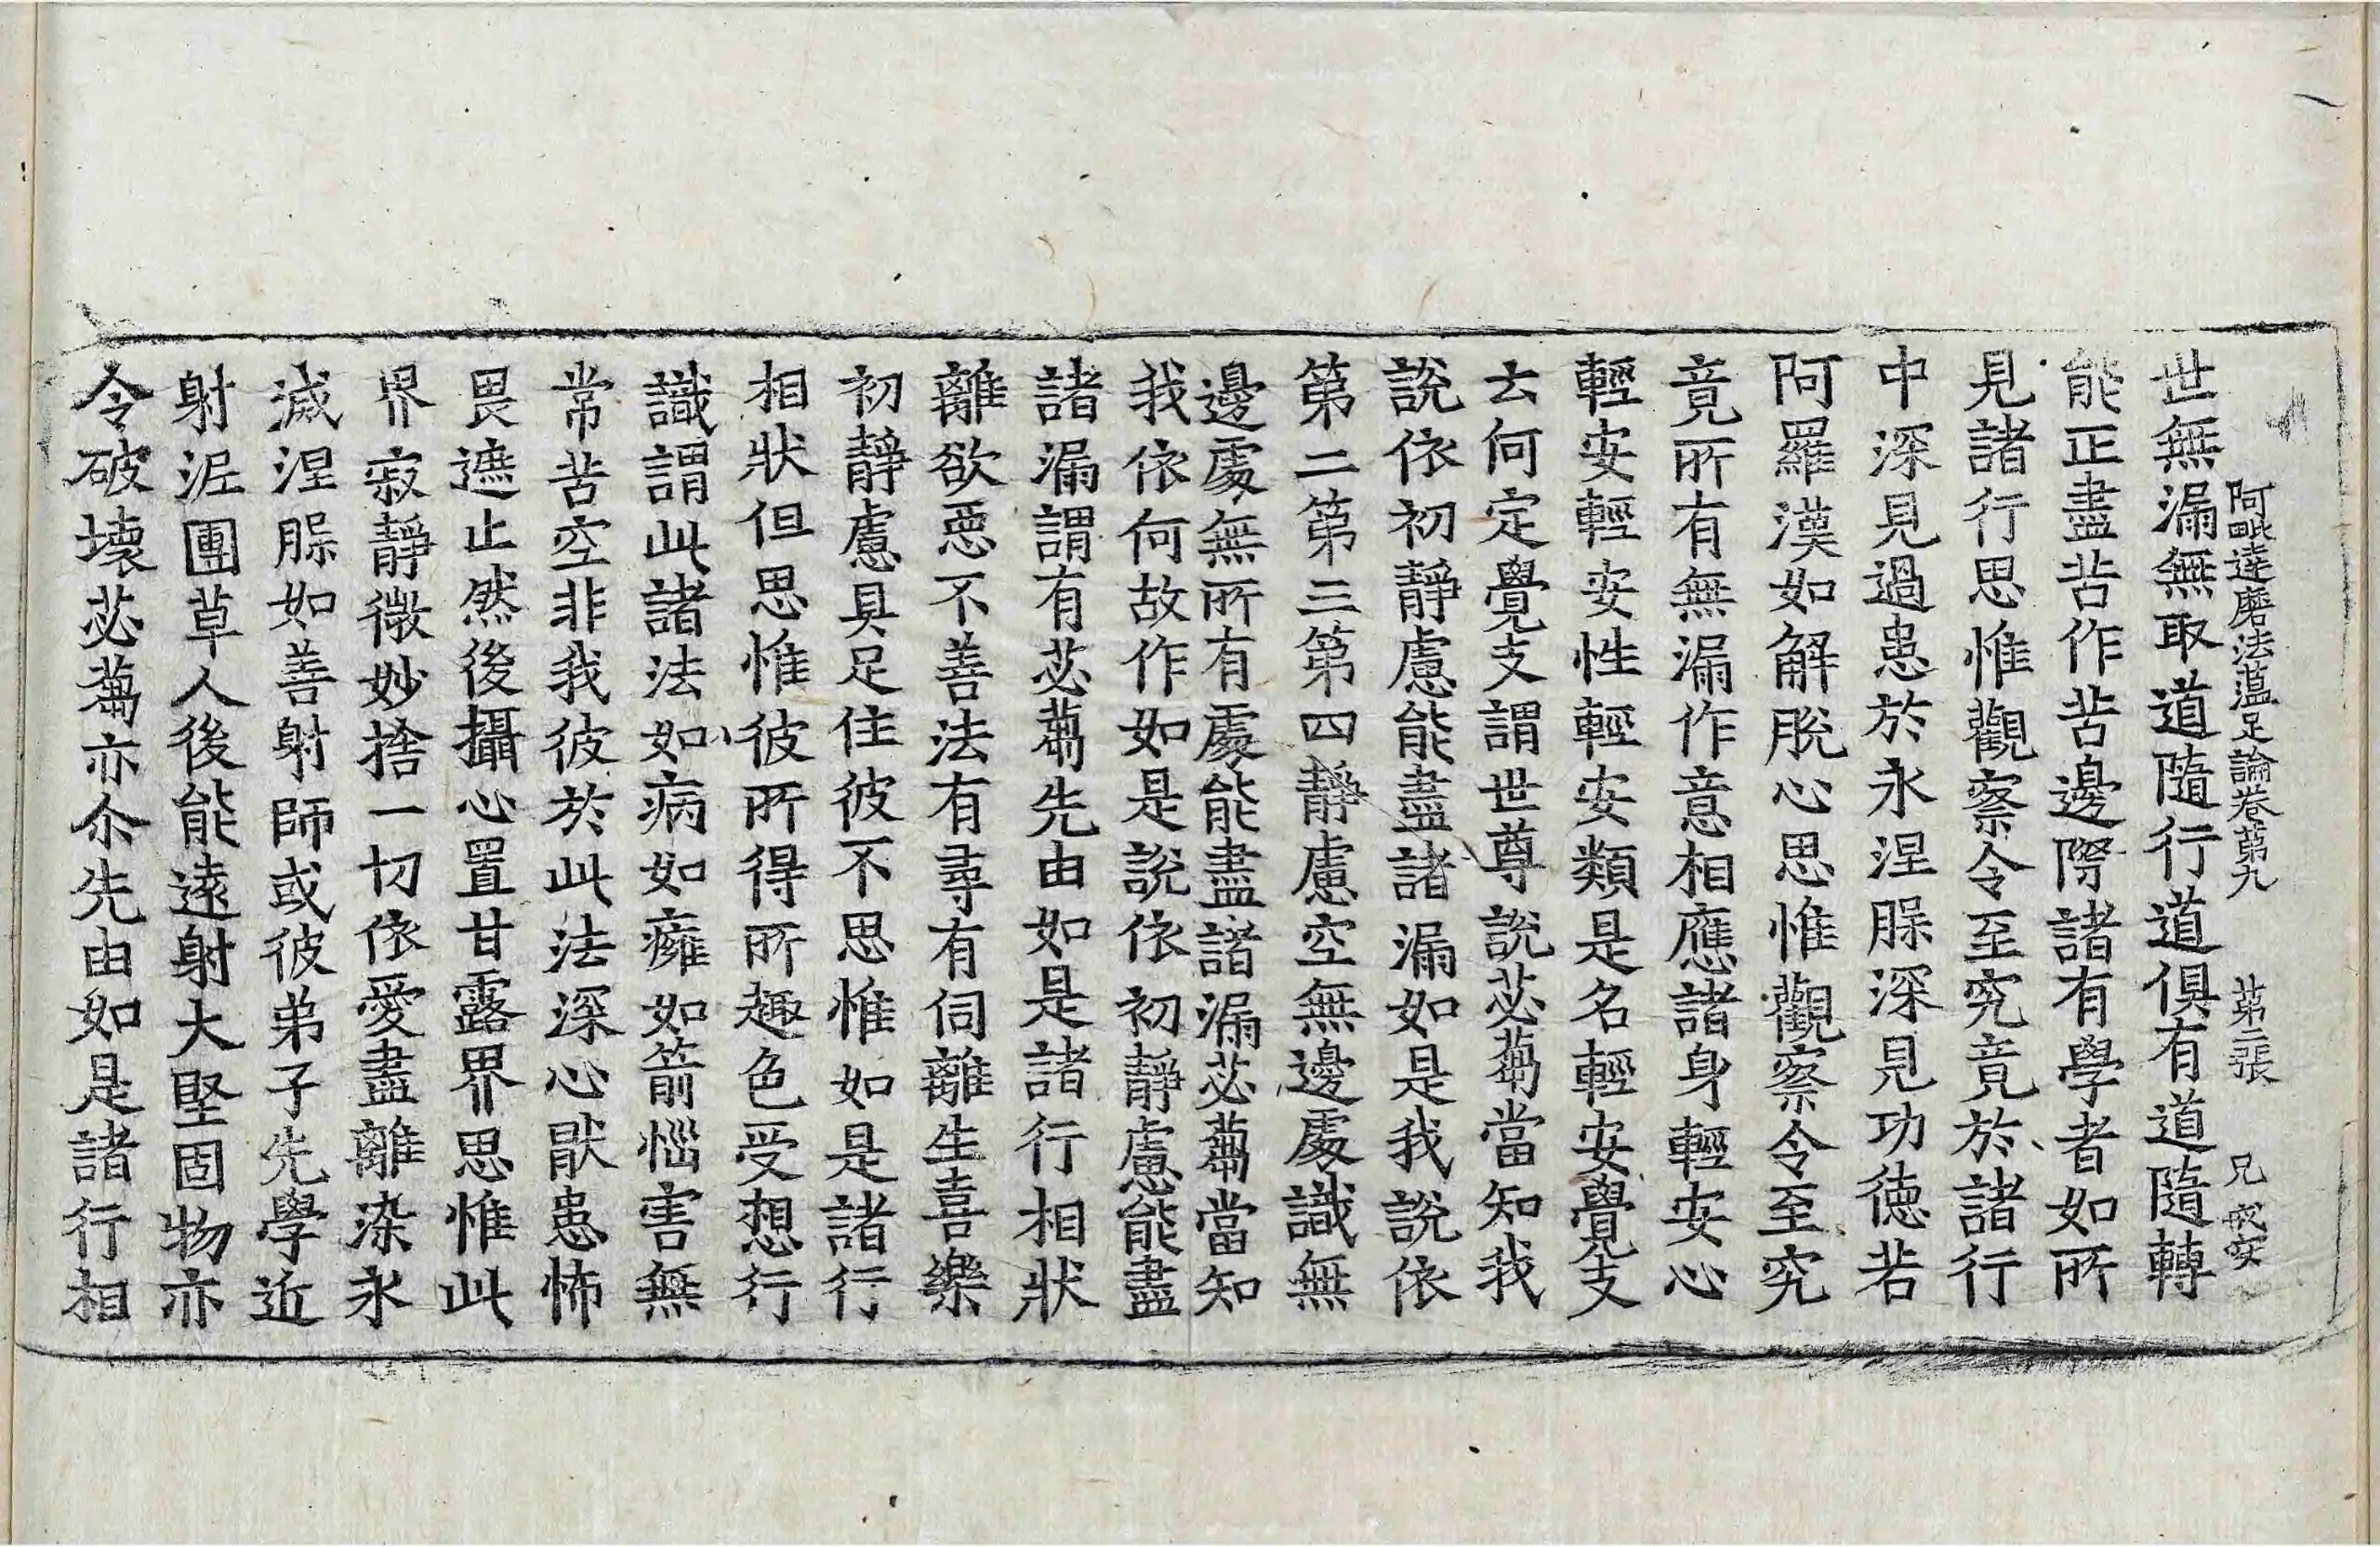 阿毗達磨法蘊足論卷第九　第二張　兄
世無漏無取道隨行道俱有道隨轉
能正盡苦作苦邊際諸有學者如所
見諸行思惟觀察令至究竟於諸行
中深見過患於永涅槃深見功德若
阿羅漢如解脫心思惟觀察令至究
竟所有無漏作意相應諸身輕安心
輕安輕安性輕安類是名輕安覺支
云何定覺支謂世尊說苾蒭當知我
說依初靜慮能盡諸漏如是我說依
第二第三第四靜慮空無邊處識無
邊處無所有處能盡諸漏苾蒭當知
我依何故作如是說依初靜慮能盡
諸漏謂有苾蒭先由如是諸行相狀
離欲惡不善法有尋有伺離生喜樂
初靜慮具足住彼不思惟如是諸行
相狀但思惟彼所得所趣色受想行
識謂此諸法如病如癰如箭惱害無
常苦空非我彼於此法深心厭患怖
畏遮止然後攝心置甘露界思惟此
界寂靜微妙捨一切依愛盡離染永
滅涅槃如善射師或彼弟子先學近
射泥團草人後能遠射大堅固物亦
令破壞苾蒭亦尒先由如是諸行相